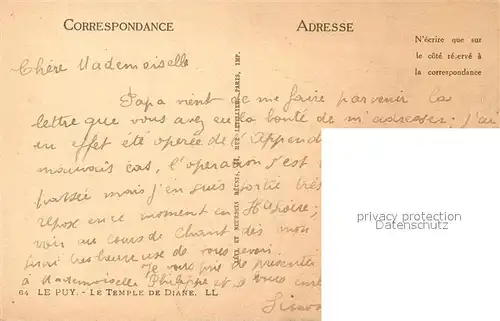 CORRESPONDANCE
ADRESSE
N'écrire que sur
le côté réservé à
la correspondance
Chère Mademoiselle
Papa vient de me faire parvenir la
lettre que vous avez eu la bonté de m'adresser; j'ai
en effet été opérée de l'Append
mauvais cas, l'opération s'est
passée mais j'en suis sortie très
repose en ce moment en
voir au cours de Chant dès mon
serai très heureuse de vous revoir.
Je vous prie de présenter
à Mademoiselle Philippe et à vous
64 LE PUY. - LE TEMPLE DE DIANE. LL
LÉVY ET NEURDEIN RÉUNIS, 44, RUE LETELLIER, PARIS, IMP.
privacy protection
Datenschutz